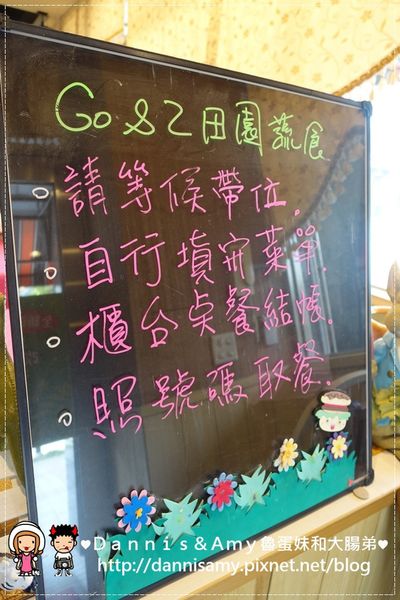 Go 82 田園蔬食
請等候帶位。
自行填寫菜單.
櫃台点餐結帳.
照號碼取餐.
♥Dannis&Amy魯蛋妹和大腸弟♥
http://dannisamy.pixnet.net/blog